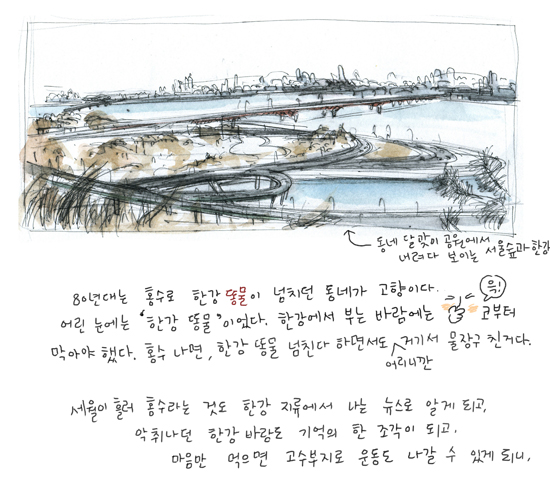 동네 달맞이 공원에서
내려다 보이는 서울숲과 한강
80년대는 홍수로 한강 똥물이 넘치던 동네가 고향이다.
윽!
어린 눈에는 '한강 똥물'이었다. 한강에서 부는 바람에는 코부터
막아야 했다. 홍수 나면, 한강 똥물 넘친다 하면서도 거기서 물장구 친거다.
어리니깐
세월이 흘러 홍수라는 것도 한강 지류에서 나는 뉴스로 알게 되고,
악취나던 한강 바람도 기억의 한 조각이 되고.
마음만 먹으면 고수부지로 운동도 나갈 수 있게 되니,